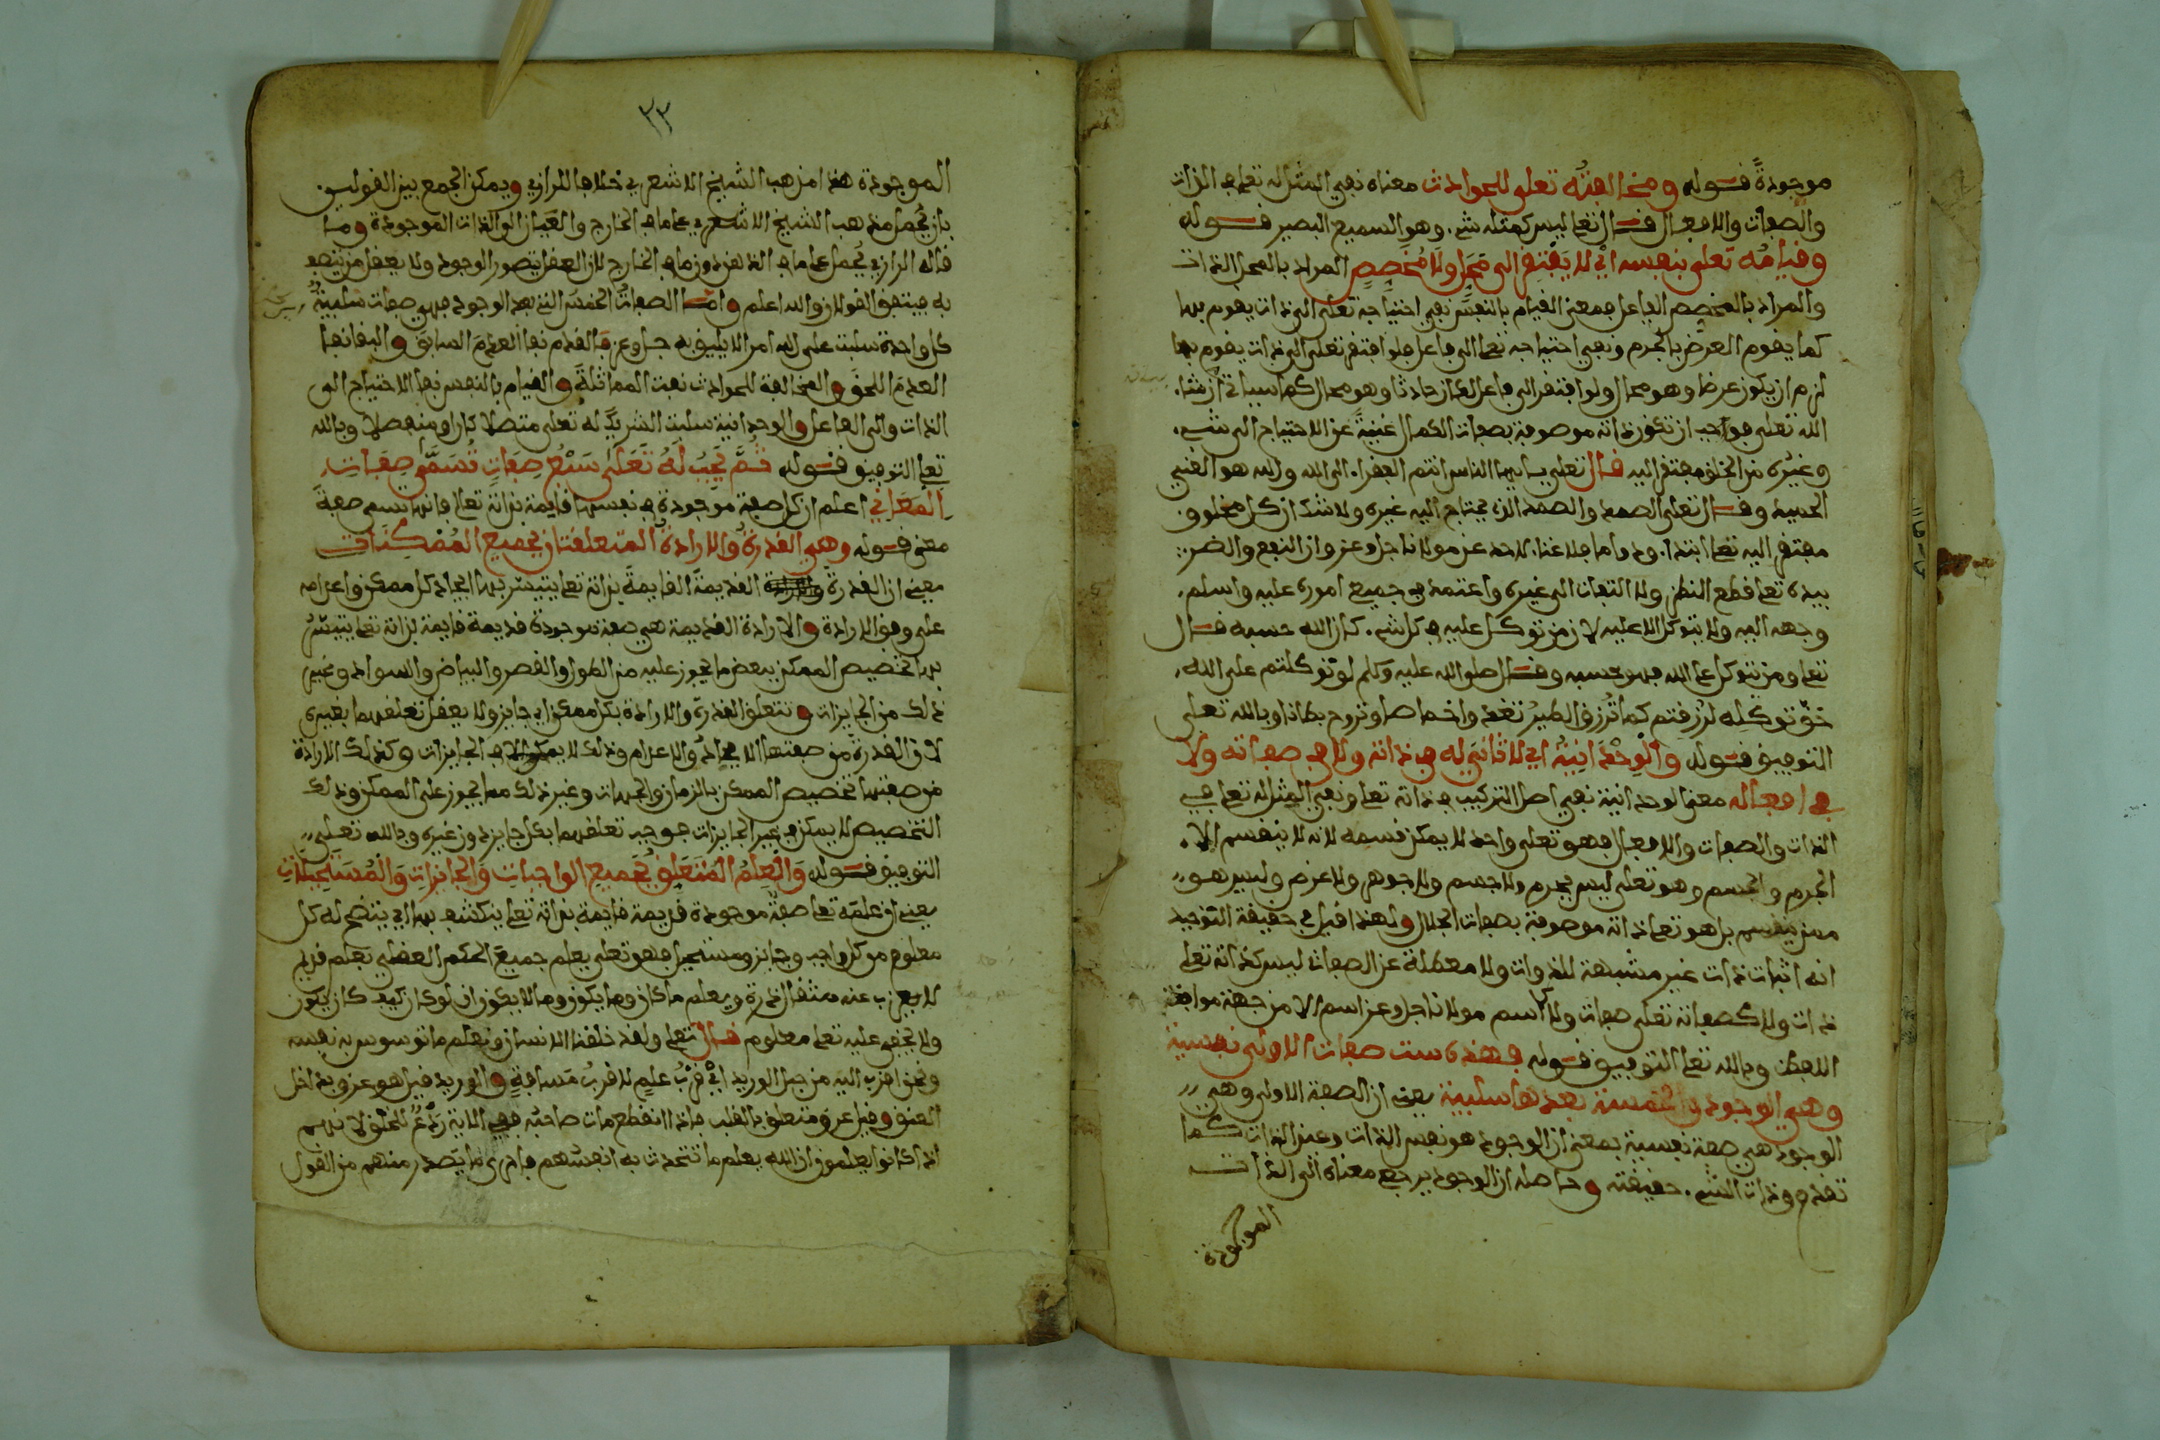 موجودة قوله ومخالفته تعلى للحوادث معناه نفي المثل له تعلى في الذات
والصفات والافعال قال تعلى ليس كمثله شيء وهو السميع البصير قوله
وقيامه تعلى بنفسه اي لا يفتقر الى محل ولا مخصص المراد بالمحل الذات
والمراد بالمخصص الفاعل فمعنى القيام بالنفس نفي احتياجه تعلى الى ذات يقوم بها
كما يقوم العرض بالجرم ونفي احتياجه تعلى الى فاعل فلو افتقر تعلى الى ذات يقوم بها
لزم ان يكون عرضا وهو محال ولو افتقر الى فاعل لكان حادثا وهو محال كما سياتي ان شاء
الله تعلى فواجب ان تكون ذاته موصوفة بصفات الكمال غنية عن الاحتياج الى شيء
وغيره من الخلق مفتقر اليه قال تعلى يايها الناس انتم الفقراء الى الله والله هو الغني
الحميد وقال تعلى الصمد والصمد الذي يحتاج اليه غيره ولا شك ان كل مخلوق
مفتقر اليه تعلى ابتداء ودواما فلا غناء لاحد عن مولانا جل وعز وان النفع والضر
بيده تعلى فطع النظر ولا التفات الى غيره واعتمد في جميع امورك عليه واسلم
وجهك اليه ولا تتوكل الا عليه لان من توكل عليه في كل شيء كان الله حسبه قال
تعلى ومن يتوكل على الله فهو حسبه وقال صلى الله عليه وسلم لو توكلتم على الله
حق توكله لرزقتم كما ترزق الطير تغدوا خماصا وتروح بطانا وبالله تعلى
التوفيق قوله والوحدانية اي لا ثاني له في ذاته ولا في صفاته ولا
في افعاله معنى الوحدانية نفي اصل التركيب في ذاته تعلى ونفي المثل له تعلى في
الذات والصفات والافعال فهو تعلى واحد لا يمكن قسمه لانه لا ينقسم الا
الجرم والجسم وهو تعلى ليس بجرم ولا جسم ولا جوهر ولا عرض وليس هو
ممن ينقسم بل هو تعلى ذاته موصوفة بصفات الجلال ولهذا قيل في حقيقة التوحيد
انه اثبات ذات غير مشبهة للذوات ولا معطلة عن الصفات ليس كذاته تعلى
ذات ولا كصفاته تعلى صفات ولا كاسم مولانا جل وعز اسم الا من جهة موافقة
اللفظ وبالله تعلى التوفيق قوله فهذه ست صفات الاولى نفسية
وهي الوجود والخمسة بعدها سلبية يعني ان الصفة الاولى وهي
الوجود هي صفة نفسية بمعنى ان الوجود هو نفس الذات وعين الذات كما
تقدم وذات الشيء حقيقته وحاصله ان الوجود يرجع معناه الى الذات
الموجودة
٢٣
الموجودة هذا مذهب الشيخ الاشعري خلافا للرازي ويمكن الجمع بين القولين
بان يحمل مذهب الشيخ الاشعري على ما في الخارج والعيان اي الذات الموجودة وما
قاله الرازي يحمل على ما في الذهن دون ما في الخارج لان العقل يتصور الوجود ولا يعقل من يتصف
به فيتفق القولان والله اعلم واما الصفات الخمس التي بعد الوجود فهي صفات سلبية
كل واحدة سلبت على الله امرا لا يليق به جل وعز فالقدم نفا العدم السابق والبقا نفا
العدم اللاحق والمخالفة للحوادث نفت المماثلة والقيام بالنفس نفا الاحتياج الى
الذات والى الفاعل والوحدانية سلبت الشريك له تعلى متصلا كان او منفصلا وبالله
تعلى التوفيق قوله ثم يجب له تعلى سبع صفات تسمى صفات
المعاني اعلم ان كل صفة موجودة في نفسها قايمة بذاته تعلى فانها تسمى صفة
معنى قوله وهي القدرة والارادة المتعلقتان بجميع الممكنات
يعني ان القدرة القديمة القايمة بذاته تعلى يتيسر بها ايجاد كل ممكن واعدامه
على وفق الارادة والارادة القديمة هي صفة موجودة قديمة قايمة بذاته تعلى يتيسر
بها تخصيص الممكن ببعض ما يجوز عليه من الطول والقصر والبياض والسواد وغير
ذلك من الجايزات وتتعلق القدرة والارادة بكل ممكن اي جايز ولا يعقل تعلقهما بغيره
لان القدرة من صفتها الايجاد والاعدام وذلك لا يمكن الا في الجايزات وكذلك الارادة
من صفتها تخصيص الممكن بالزمان والجهات وغير ذلك مما يجوز على الممكن وذلك
التخصيص لا يمكن في غير الجايزات فوجب تعلقهما بكل جايز دون غيره وبالله تعلى
التوفيق قوله والعلم المتعلق بجميع الواجبات والجائزات والمستحيلات
يعني ان علمه تعلى صفة موجودة قديمة قايمة بذاته تعلى ينكشف بها اي يتضح له كل
معلوم من كل واجب وجايز ومستحيل فهو تعلى يعلم جميع الحكم العقلي بعلم قديم
لا يعزب عنه مثقال ذرة ويعلم ما كان وما يكون وما لا يكون ان لو كان كيف كان يكون
ولا يخفى عليه تعلى معلوم قال تعلى ولقد خلقنا الانسان ونعلم ما توسوس به نفسه
ونحن اقرب اليه من حبل الوريد اي قرب علم لا قرب مسافة والوريد قيل هو عرق بداخل
العنق وقيل عرق متعلق بالقلب فاذا انقطع مات صاحبه ففي الاية ردع للخلق لانهم
اذا كانوا يعلمون ان الله يعلم ما تتحدث به انفسهم فاحرى ما يصدر منهم من القول